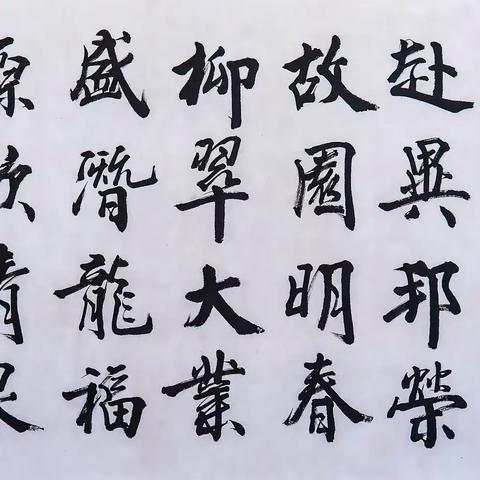 赴異邦榮
故園明春
柳翠大業
盛潛龍福